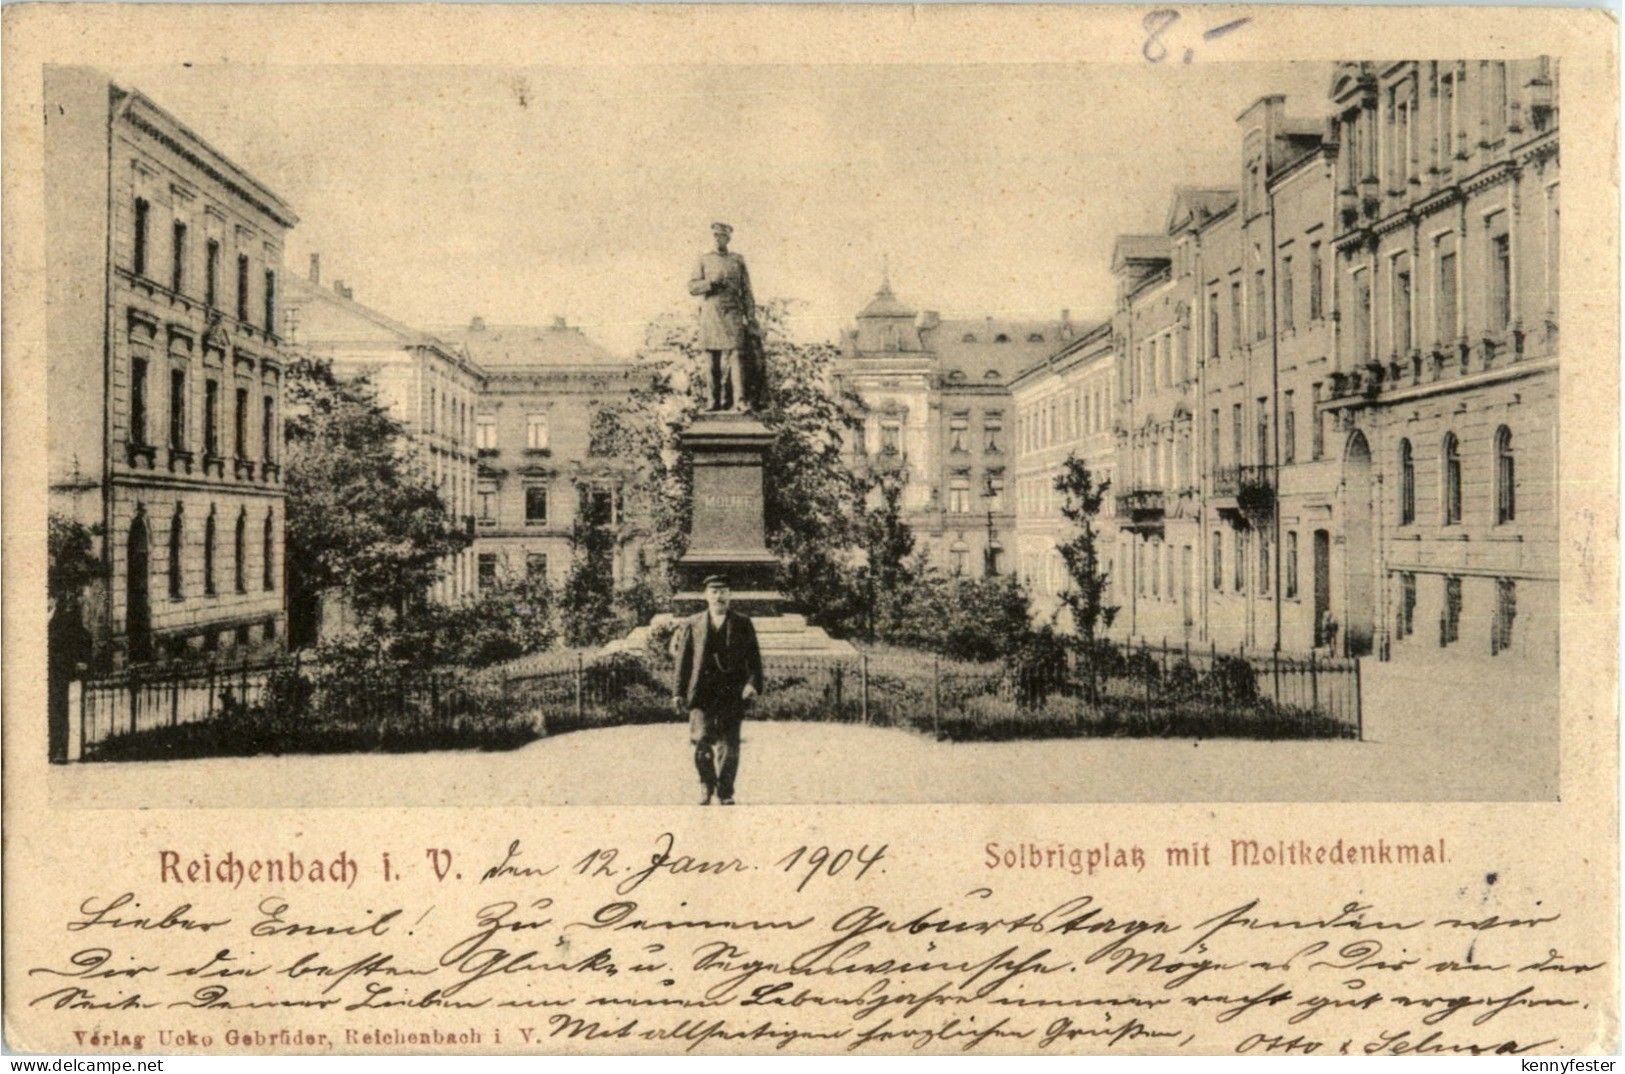 8,-
MOLTKE
Reichenbach i. V. den 12. Janr. 1904. Solbrigplatz mit Moltkedenkmal.
Lieber Emil! Zu Deinem Geburtstage senden wir
Dir die besten Glück u. Segenswünsche. Möge es Dir an der
Seite Deiner Lieben im neuen Lebensjahre immer recht gut ergehen.
Mit allseitigen herzlichen Grüßen,
Otto & Selma.
Verlag Ucko Gebrüder, Reichenbach i V.
delcampe.net
kennyfester